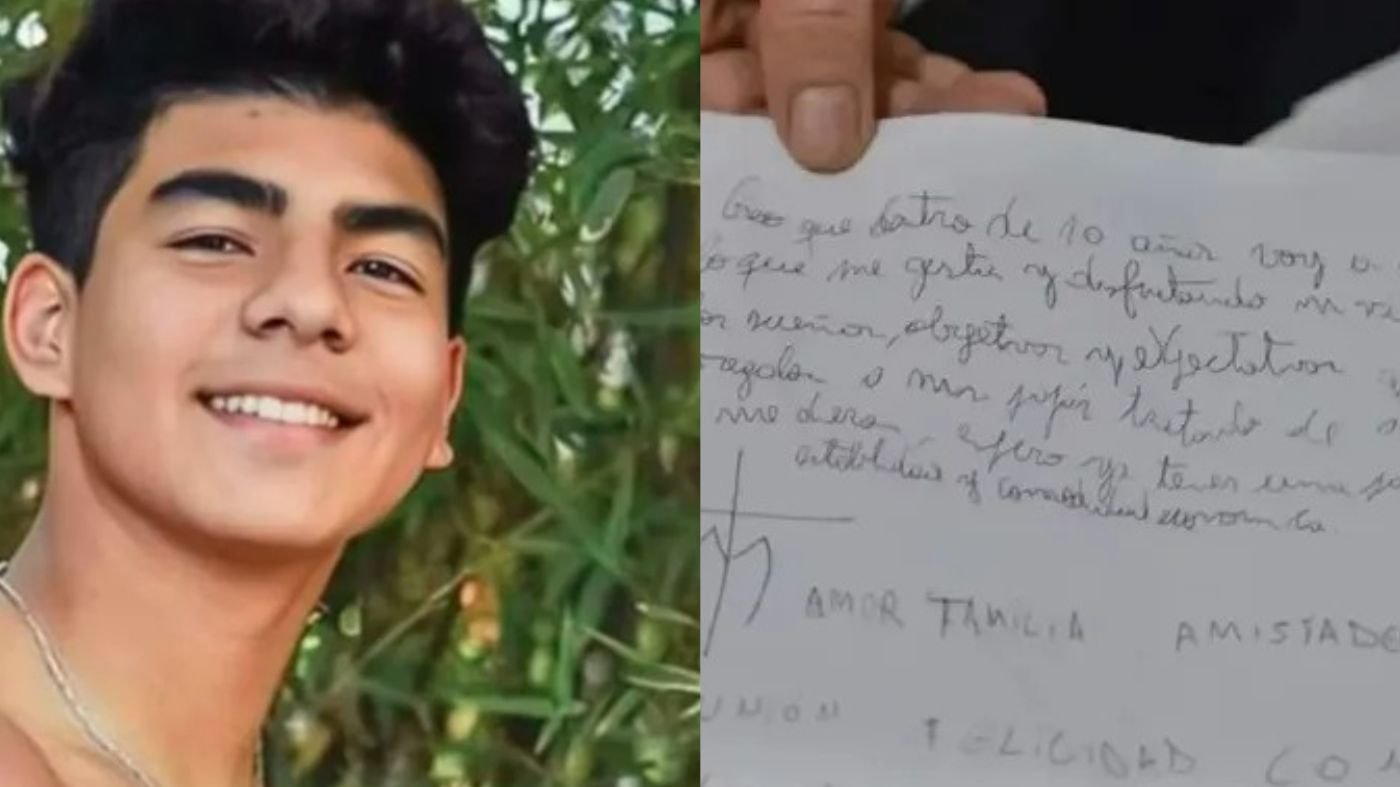 Creo que dentro de 10 años voy a
lo que me gusta y disfrutando m
sueños, objetivos y expectativas
regalan a mis papis tratando de
me dieron espero ya tener una
estabilidad y comodidad economica.
AMOR FAMILIA AMISTADE
UNIÓN FELICIDAD CO